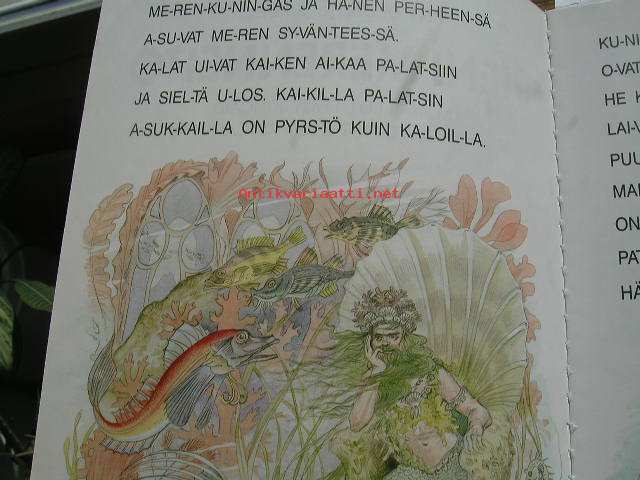 ME-REN-KU-NIN-GAS JA HÄ-NEN PER-HEEN-SÄ
A-SU-VAT ME-REN SY-VÄN-TEES-SÄ.
KA-LAT UI-VAT KAI-KEN AI-KAA PA-LAT-SIIN
JA SIEL-TÄ U-LOS. KAI-KIL-LA PA-LAT-SIN
A-SUK-KAIL-LA ON PYRS-TÖ KUIN KA-LOIL-LA.
Antikvariaatti.net
KU-NI
O-VAT
HE K
LAI-V
PUU
MAI
ON
PAT
HÄ